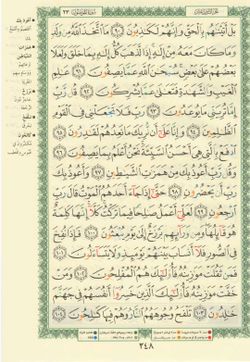 ٢٣
بَلْ أَتَيْنَٰهُم بِٱلْحَقِّ وَإِنَّهُمْ لَكَٰذِبُونَ ٩٠ مَا ٱتَّخَذَ ٱللَّهُ مِن وَلَدٍ
وَمَا كَانَ مَعَهُۥ مِنْ إِلَٰهٍ إِذًا لَّذَهَبَ كُلُّ إِلَٰهٍۭ بِمَا خَلَقَ وَلَعَلَا
بَعْضُهُمْ عَلَىٰ بَعْضٍ سُبْحَٰنَ ٱللَّهِ عَمَّا يَصِفُونَ ٩١ عَٰلِمِ
ٱلْغَيْبِ وَٱلشَّهَٰدَةِ فَتَعَٰلَىٰ عَمَّا يُشْرِكُونَ ٩٢ قُل رَّبِّ
إِمَّا تُرِيَنِّي مَا يُوعَدُونَ ٩٣ رَبِّ فَلَا تَجْعَلْنِي فِي ٱلْقَوْمِ
ٱلظَّٰلِمِينَ ٩٤ وَإِنَّا عَلَىٰٓ أَن نُّرِيَكَ مَا نَعِدُهُمْ لَقَٰدِرُونَ ٩٥
ٱدْفَعْ بِٱلَّتِي هِيَ أَحْسَنُ ٱلسَّيِّئَةَ نَحْنُ أَعْلَمُ بِمَا يَصِفُونَ ٩٦ وَقُل
رَّبِّ أَعُوذُ بِكَ مِنْ هَمَزَٰتِ ٱلشَّيَٰطِينِ ٩٧ وَأَعُوذُ بِكَ
رَبِّ أَن يَحْضُرُونِ ٩٨ حَتَّىٰٓ إِذَا جَآءَ أَحَدَهُمُ ٱلْمَوْتُ قَالَ رَبِّ
ٱرْجِعُونِ ٩٩ لَعَلِّيٓ أَعْمَلُ صَٰلِحًا فِيمَا تَرَكْتُ كَلَّآ إِنَّهَا كَلِمَةٌ
هُوَ قَآئِلُهَا وَمِن وَرَآئِهِم بَرْزَخٌ إِلَىٰ يَوْمِ يُبْعَثُونَ ١٠٠ فَإِذَا نُفِخَ
فِي ٱلصُّورِ فَلَآ أَنسَابَ بَيْنَهُمْ يَوْمَئِذٍ وَلَا يَتَسَآءَلُونَ ١٠١
فَمَن ثَقُلَتْ مَوَٰزِينُهُۥ فَأُو۟لَٰٓئِكَ هُمُ ٱلْمُفْلِحُونَ ١٠٢ وَمَنْ
خَفَّتْ مَوَٰزِينُهُۥ فَأُو۟لَٰٓئِكَ ٱلَّذِينَ خَسِرُوٓا۟ أَنفُسَهُمْ فِي جَهَنَّمَ
خَٰلِدُونَ ١٠٣ تَلْفَحُ وُجُوهَهُمُ ٱلنَّارُ وَهُمْ فِيهَا كَٰلِحُونَ ١٠٤
٣٤٨